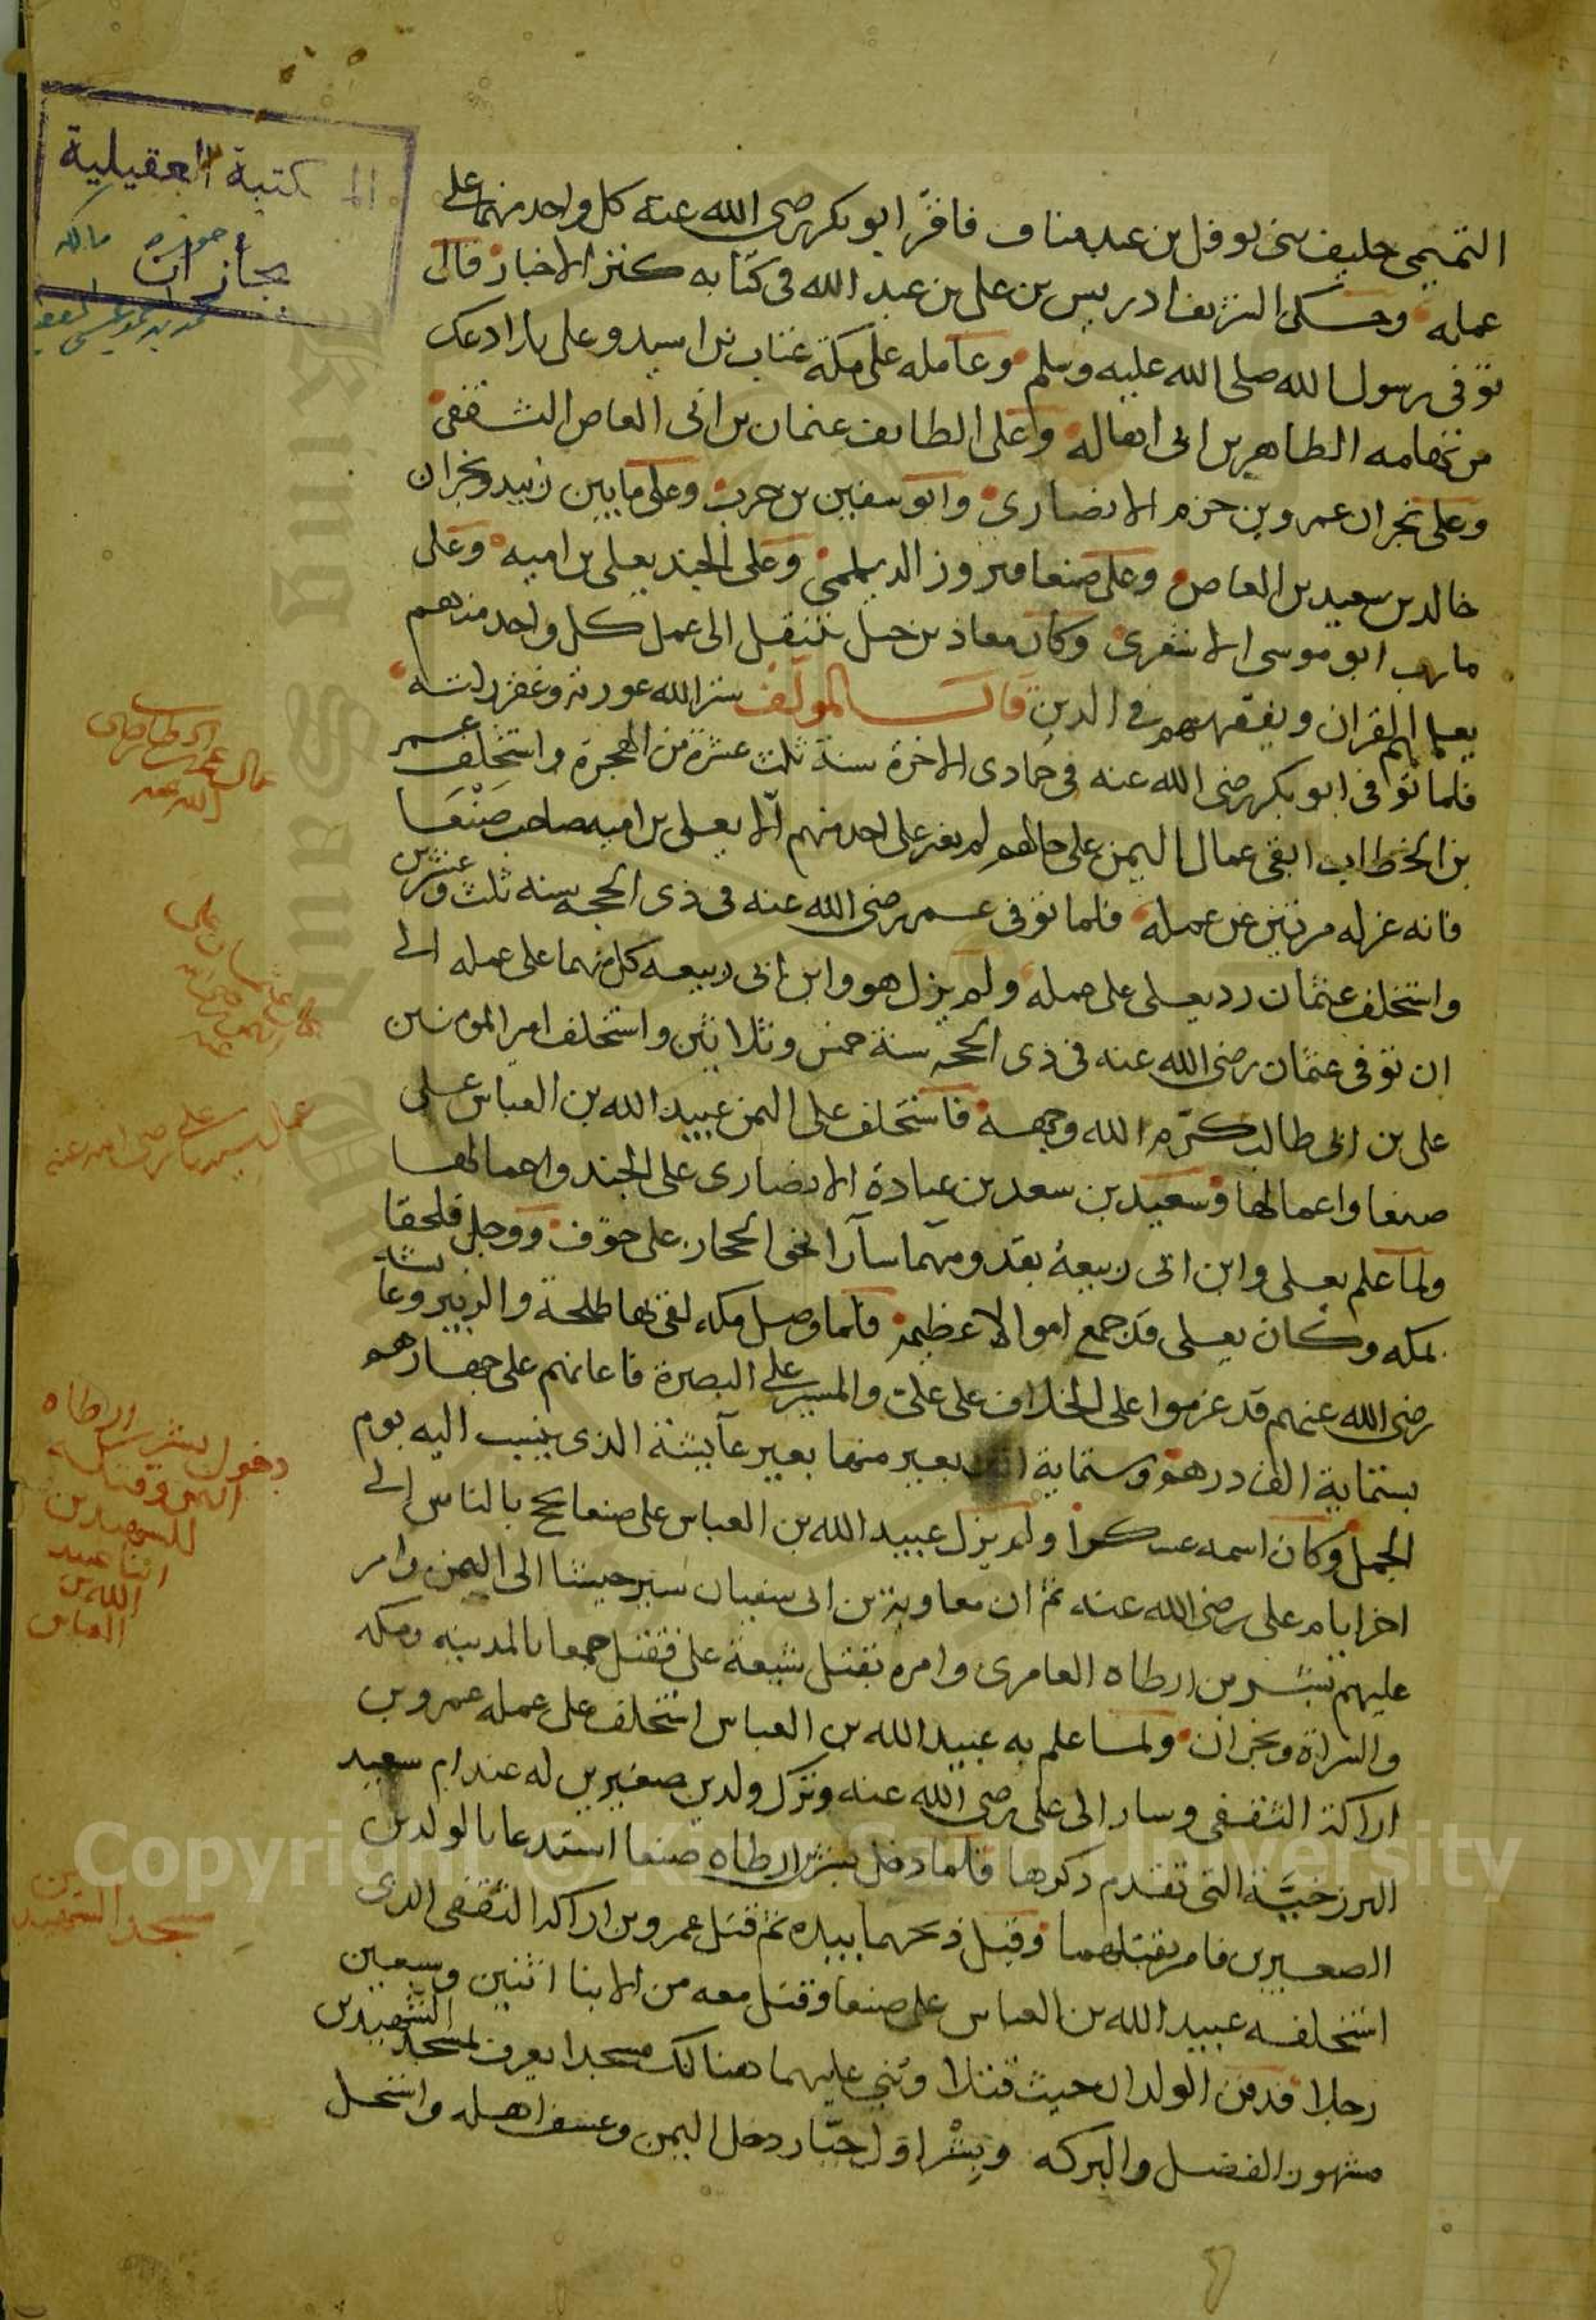 المكتبة العقيلية
جازان
التميمي حليف بني نوفل بن عبد مناف فاقر ابو بكر رضي الله عنه كل واحد منهما على
عمله وحكى الشريف ادريس بن علي بن عبد الله في كتابه كنز الاخبار قال
توفي رسول الله صلى الله عليه وسلم وعامله على مكة عتاب بن اسيد وعلى بلاد عك
من تهامه الطاهر بن ابي هاله وعلى الطايف عثمان بن ابي العاص الثقفي
وعلى نجران عمرو بن حزم الانصاري وابو سفين بن حرب وعلى ما بين زبيد ونجران
خالد بن سعيد بن العاص وعلى صنعا فيروز الديلمي وعلى الجند يعلى بن اميه وعلى
مارب ابو موسى الاشعري وكان معاذ بن جبل ينتقل الى عمل كل واحد منهم
يعلمهم القران ويفقههم في الدين قال المولف ستر الله عورته وغفر زلته
فلما توفي ابو بكر رضي الله عنه في جمادى الاخرة سنة ثلث عشرة من الهجرة واستخلف عمر
بن الخطاب ابقى عمال اليمن على حالهم لم يغير على احد منهم الا يعلى بن اميه صاحب صنعا
فانه عزله مرتين عن عمله فلما توفي عمر رضي الله عنه في ذي الحجه سنه ثلث وعشرين
واستخلف عثمان رد يعلى على عمله ولم يزل هو وابن ابي ربيعه كل منهما على عمله الى
ان توفي عثمان رضي الله عنه في ذي الحجه سنة خمس وثلاثين واستخلف امير المومنين
علي بن ابي طالب كرم الله وجهه فاستخلف على اليمن عبيد الله بن العباس على
صنعا واعمالها وسعيد بن سعد بن عبادة الانصاري على الجند واعمالها
ولما علم يعلى وابن ابي ربيعة بقدومهما سارا نحو الحجاز على خوف ووجل فلحقا
بمكه وكان يعلى قد جمع اموالا عظيمة فلما وصل مكه لقي بها طلحة والزبير وعايشة
رضي الله عنهم قد عزموا على الخلاف على علي والمسير على البصرة فاعانهم على جهازهم
بستماية الف درهم وستماية بعير منها بعير عايشة الذي ينسب اليه يوم
الجمل وكان اسمه عسكرا ولم يزل عبيد الله بن العباس على صنعا يحج بالناس الى
اخر ايام علي رضي الله عنه ثم ان معاوية بن ابي سفيان سير جيشا الى اليمن وامر
عليهم بشر بن ارطاه العامري وامره بقتل شيعة علي فقتل جمعا بالمدينه ومكه
والسراة ونجران ولما علم به عبيد الله بن العباس استخلف على عمله عمرو بن
اراكة الثقفي وسار الى علي رضي الله عنه وترك ولدين صغيرين له عند ام سعيد
البرزخيّة التي تقدم ذكرها فلما دخل بشر بن ارطاه صنعا استدعا بالولدين
الصغيرين فامر بقتلهما وقيل ذبحهما بيده ثم قتل عمرو بن اراكه الثقفي الذي
استخلفه عبيد الله بن العباس على صنعا وقتل معه من الابنا اثنين وسبعين
رجلا فدفن الولدان حيث قتلا وبني عليهما هنالك مسجدا يعرف بمسجد الشهيدين
مشهور الفضل والبركه وبشر اول جبّار دخل اليمن وعسف اهله واستحل
عمال عمر بن الخطاب رضي الله عنه
عمال سيدنا علي رضي الله عنه
دخول بشر بن ارطاه
اليمن وقتله
للشهيدين
ابنا عبيد
الله بن
العباس
مسجد الشهيدين
Copyright © King Saud University